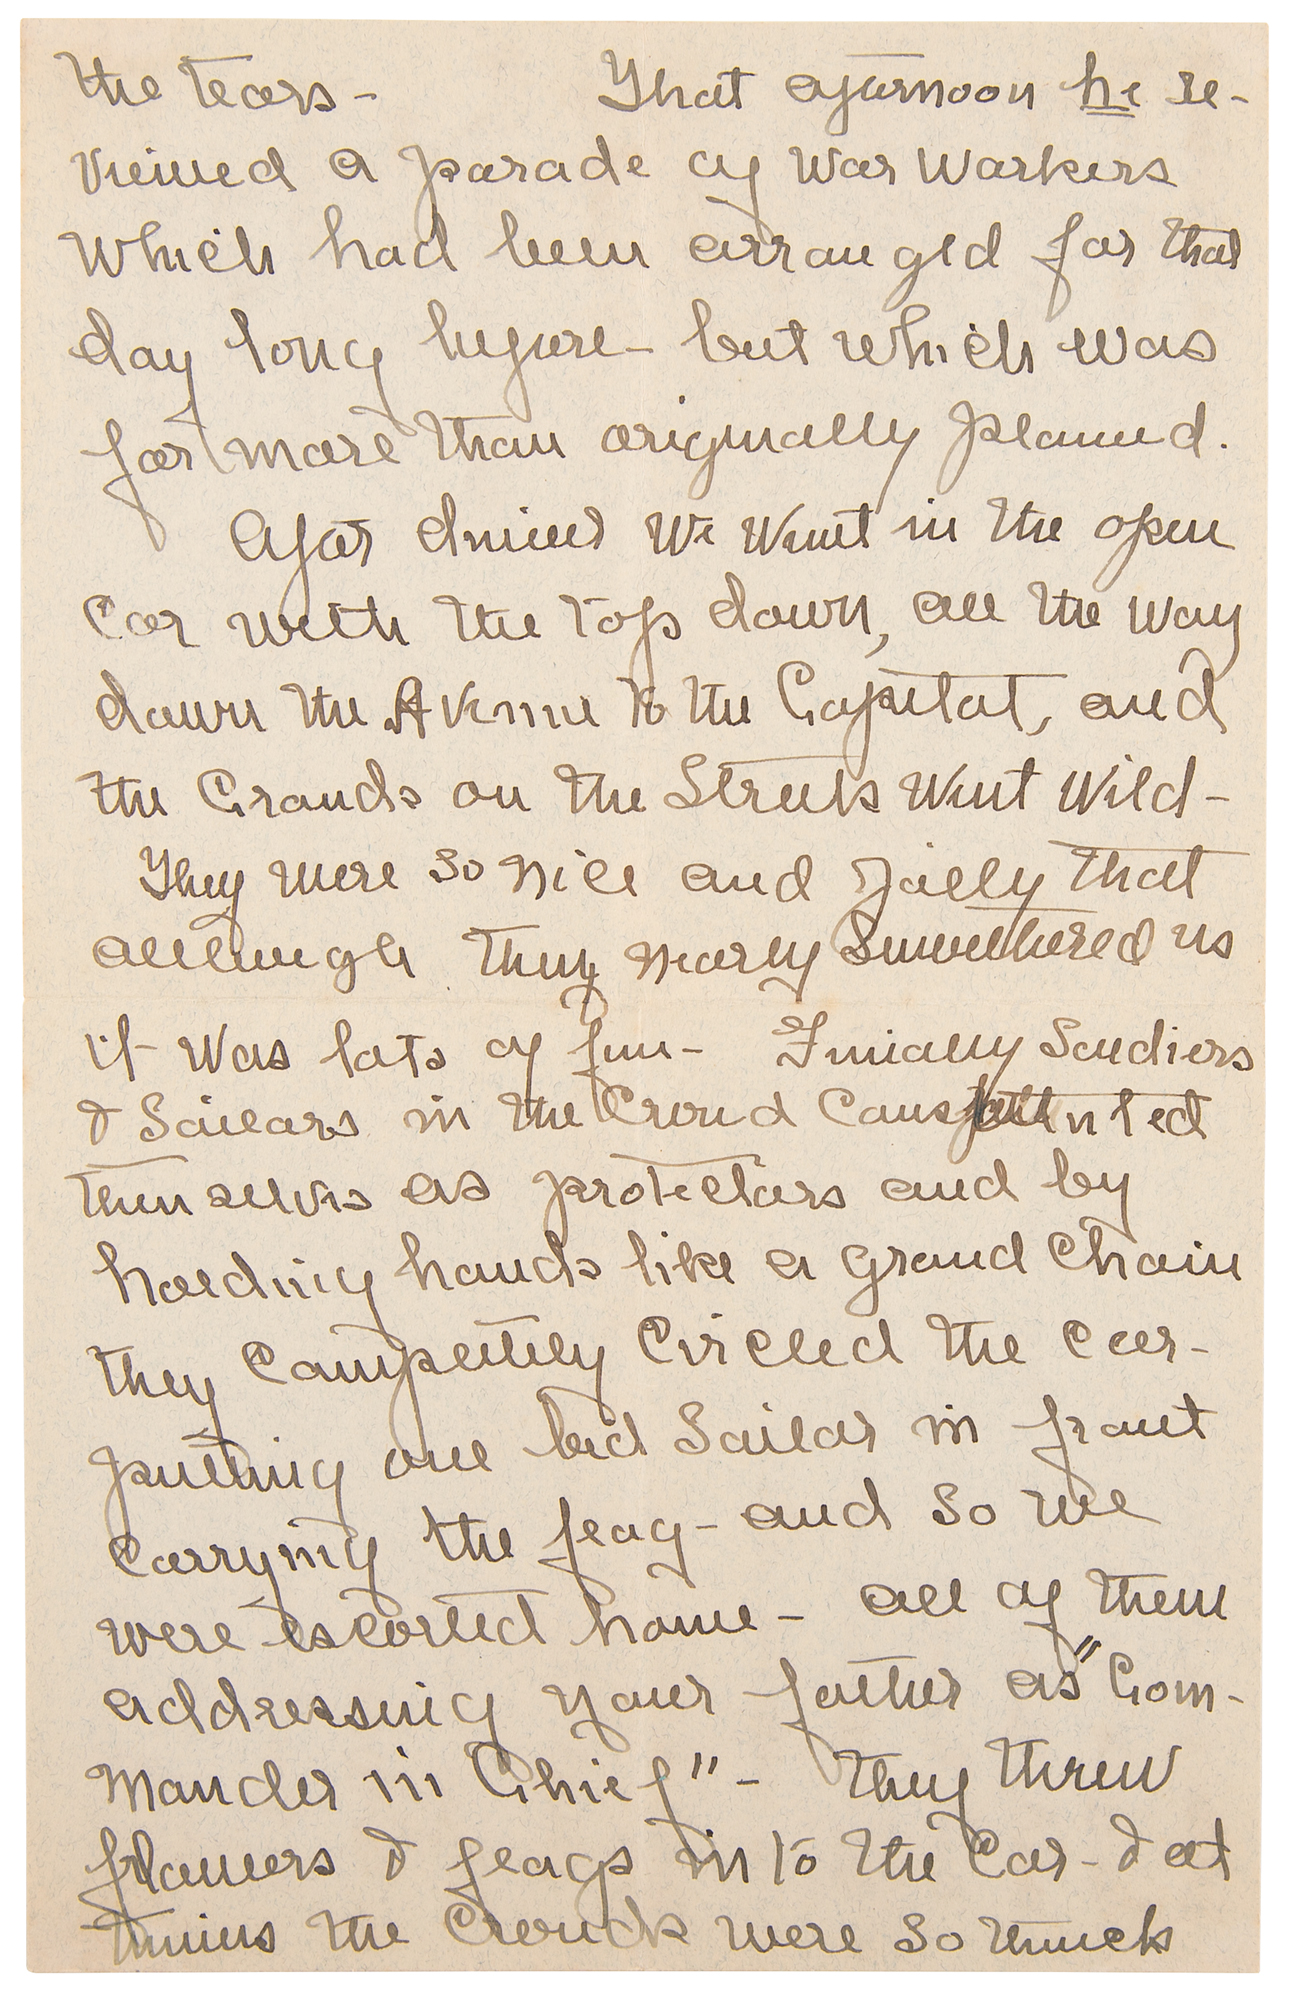 the tears - That afternoon he re-
viewed a parade of War Workers
Which had been arranged for that
day long before - but which was
far more than originally planned.
After dinner We Went in the open
Car with the top down, all the way
down the Avenue to the Capitol, and
the Crowds on the Streets Went Wild -
They were so nice and jolly that
although they nearly Smothered us
it was lots of fun - Finially Soldiers
& Sailors in the Crowd Constituted
themselves as protectors and by
holding hands like a grand Chain
they Completely Circled the Car -
putting one led Sailor in front
Carrying the flag - and so we
were escorted home - all of them
addressing your father as "Com-
mander in Chief" - They threw
flowers & flags in to the Car - & at
times the Crowds were so thick